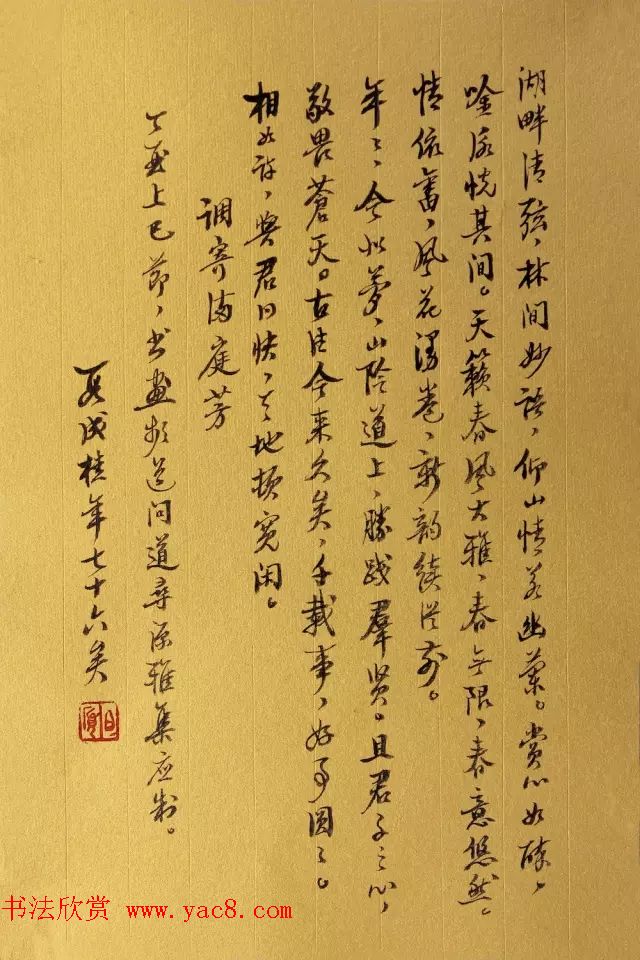 湖畔清弦、林间妙语、仰山情若幽兰。赏心如醉、
吟咏恍其间。天籁春风大雅、春无限、春意悠然。
情依旧、风花漫卷、新韵续从前。
年年、今似梦、山阴道上、胜践群贤。且君子之心、
敬畏苍天。古往今来久矣、千载事、好事圆圆。
相如许、与君同快、天地顿宽闲。
调寄满庭芳
丁酉上巳节、书画频道问道寻源雅集应制。
夏戌桂年七十六矣
书法欣赏 www.yac8.com